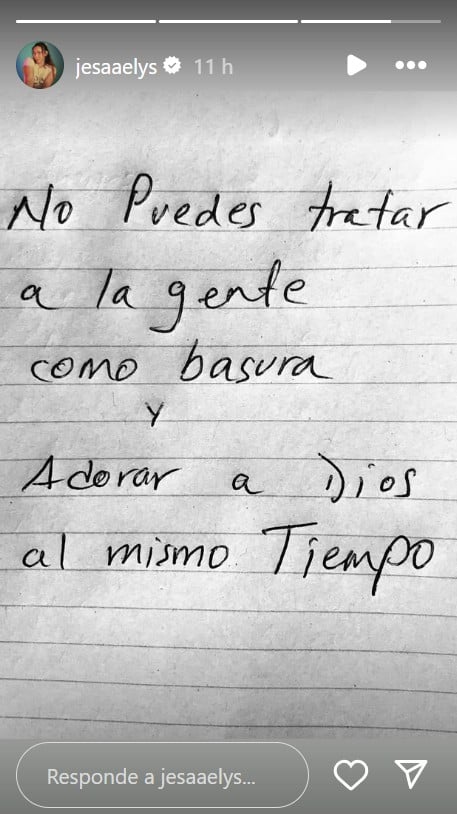 jesaaelys 11 h
No Puedes tratar
a la gente
como basura
Y
Adorar a Dios
al mismo Tiempo
Responde a jesaaelys...